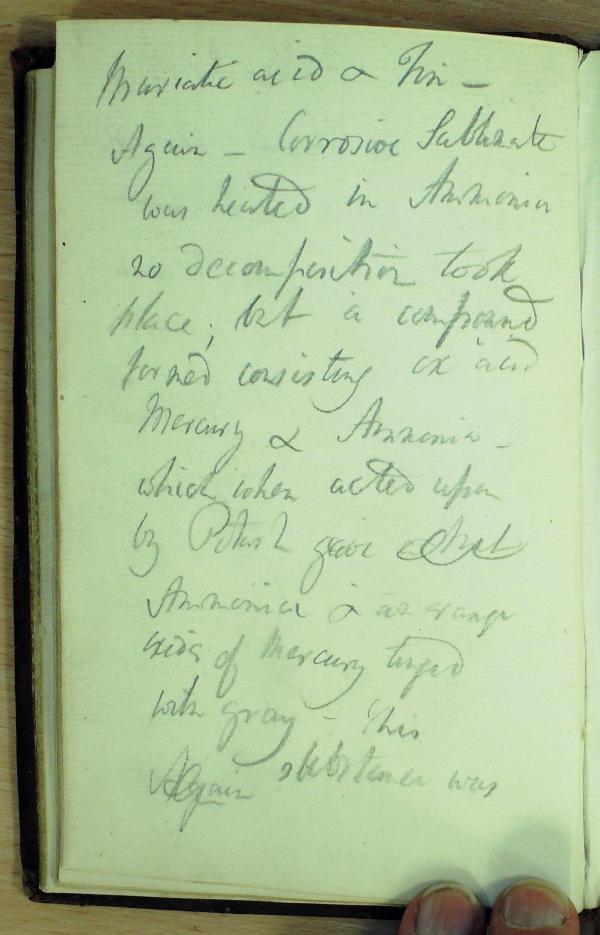 Muriatic acid & Tin —
Again — Corrosive Sublimate
was heated in Ammonia
no decomposition took
place; but a compound
formed consisting of acid
Mercury & Ammonia —
which when acted upon
by Potash gave out
Ammonia & an orange
oxide of Mercury tinged
with gray — This
Again substance was